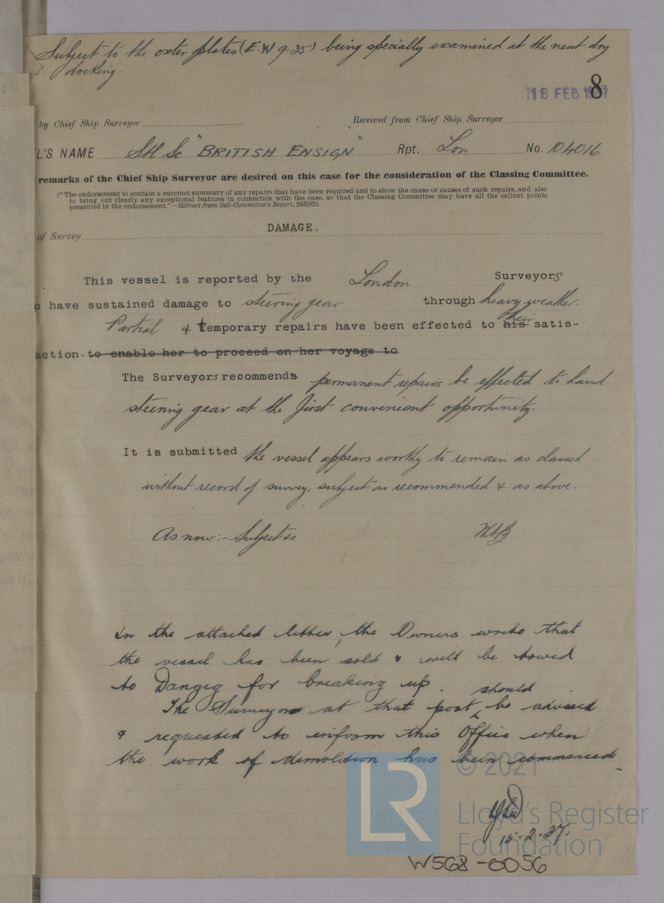 Subject to the oxter plates (E.W 9.35) being specially examined at the next dry
docking.
16 FEB 1937
8
by Chief Ship Surveyor
Received from Chief Ship Surveyor
L'S NAME "BRITISH ENSIGN" Rpt. Lon No. 104016
remarks of the Chief Ship Surveyor are desired on this case for the consideration of the Classing Committee.
("The endorsement to contain a succinct summary of any repairs that have been required and to show the cause or causes of such repairs, and also
to bring out clearly any exceptional features in connection with the case, so that the Classing Committee may have all the salient points
presented in the endorsement."—Extract from Sub-Committee's Report,
of Survey
DAMAGE.
This vessel is reported by the London Surveyors
o have sustained damage to steering gear through heavy weather.
Partial & temporary repairs have been effected to his their satis-
action to enable her to proceed on her voyage to
The Surveyors recommends permanent repairs be effected to hand
steering gear at the first convenient opportunity.
It is submitted the vessel appears worthy to remain as classed
without record of survey, subject as recommended & as above.
As now:- Subject &c
In the attached letter, the Owners write that
the vessel has been sold & will be towed
to Danzig for breaking up.
The Surveyors at that port should be advised
& requested to inform this Office when
the work of demolition has been commenced.
15.2.37.
LR
© 2021
Lloyd's Register
Foundation
W568-0056